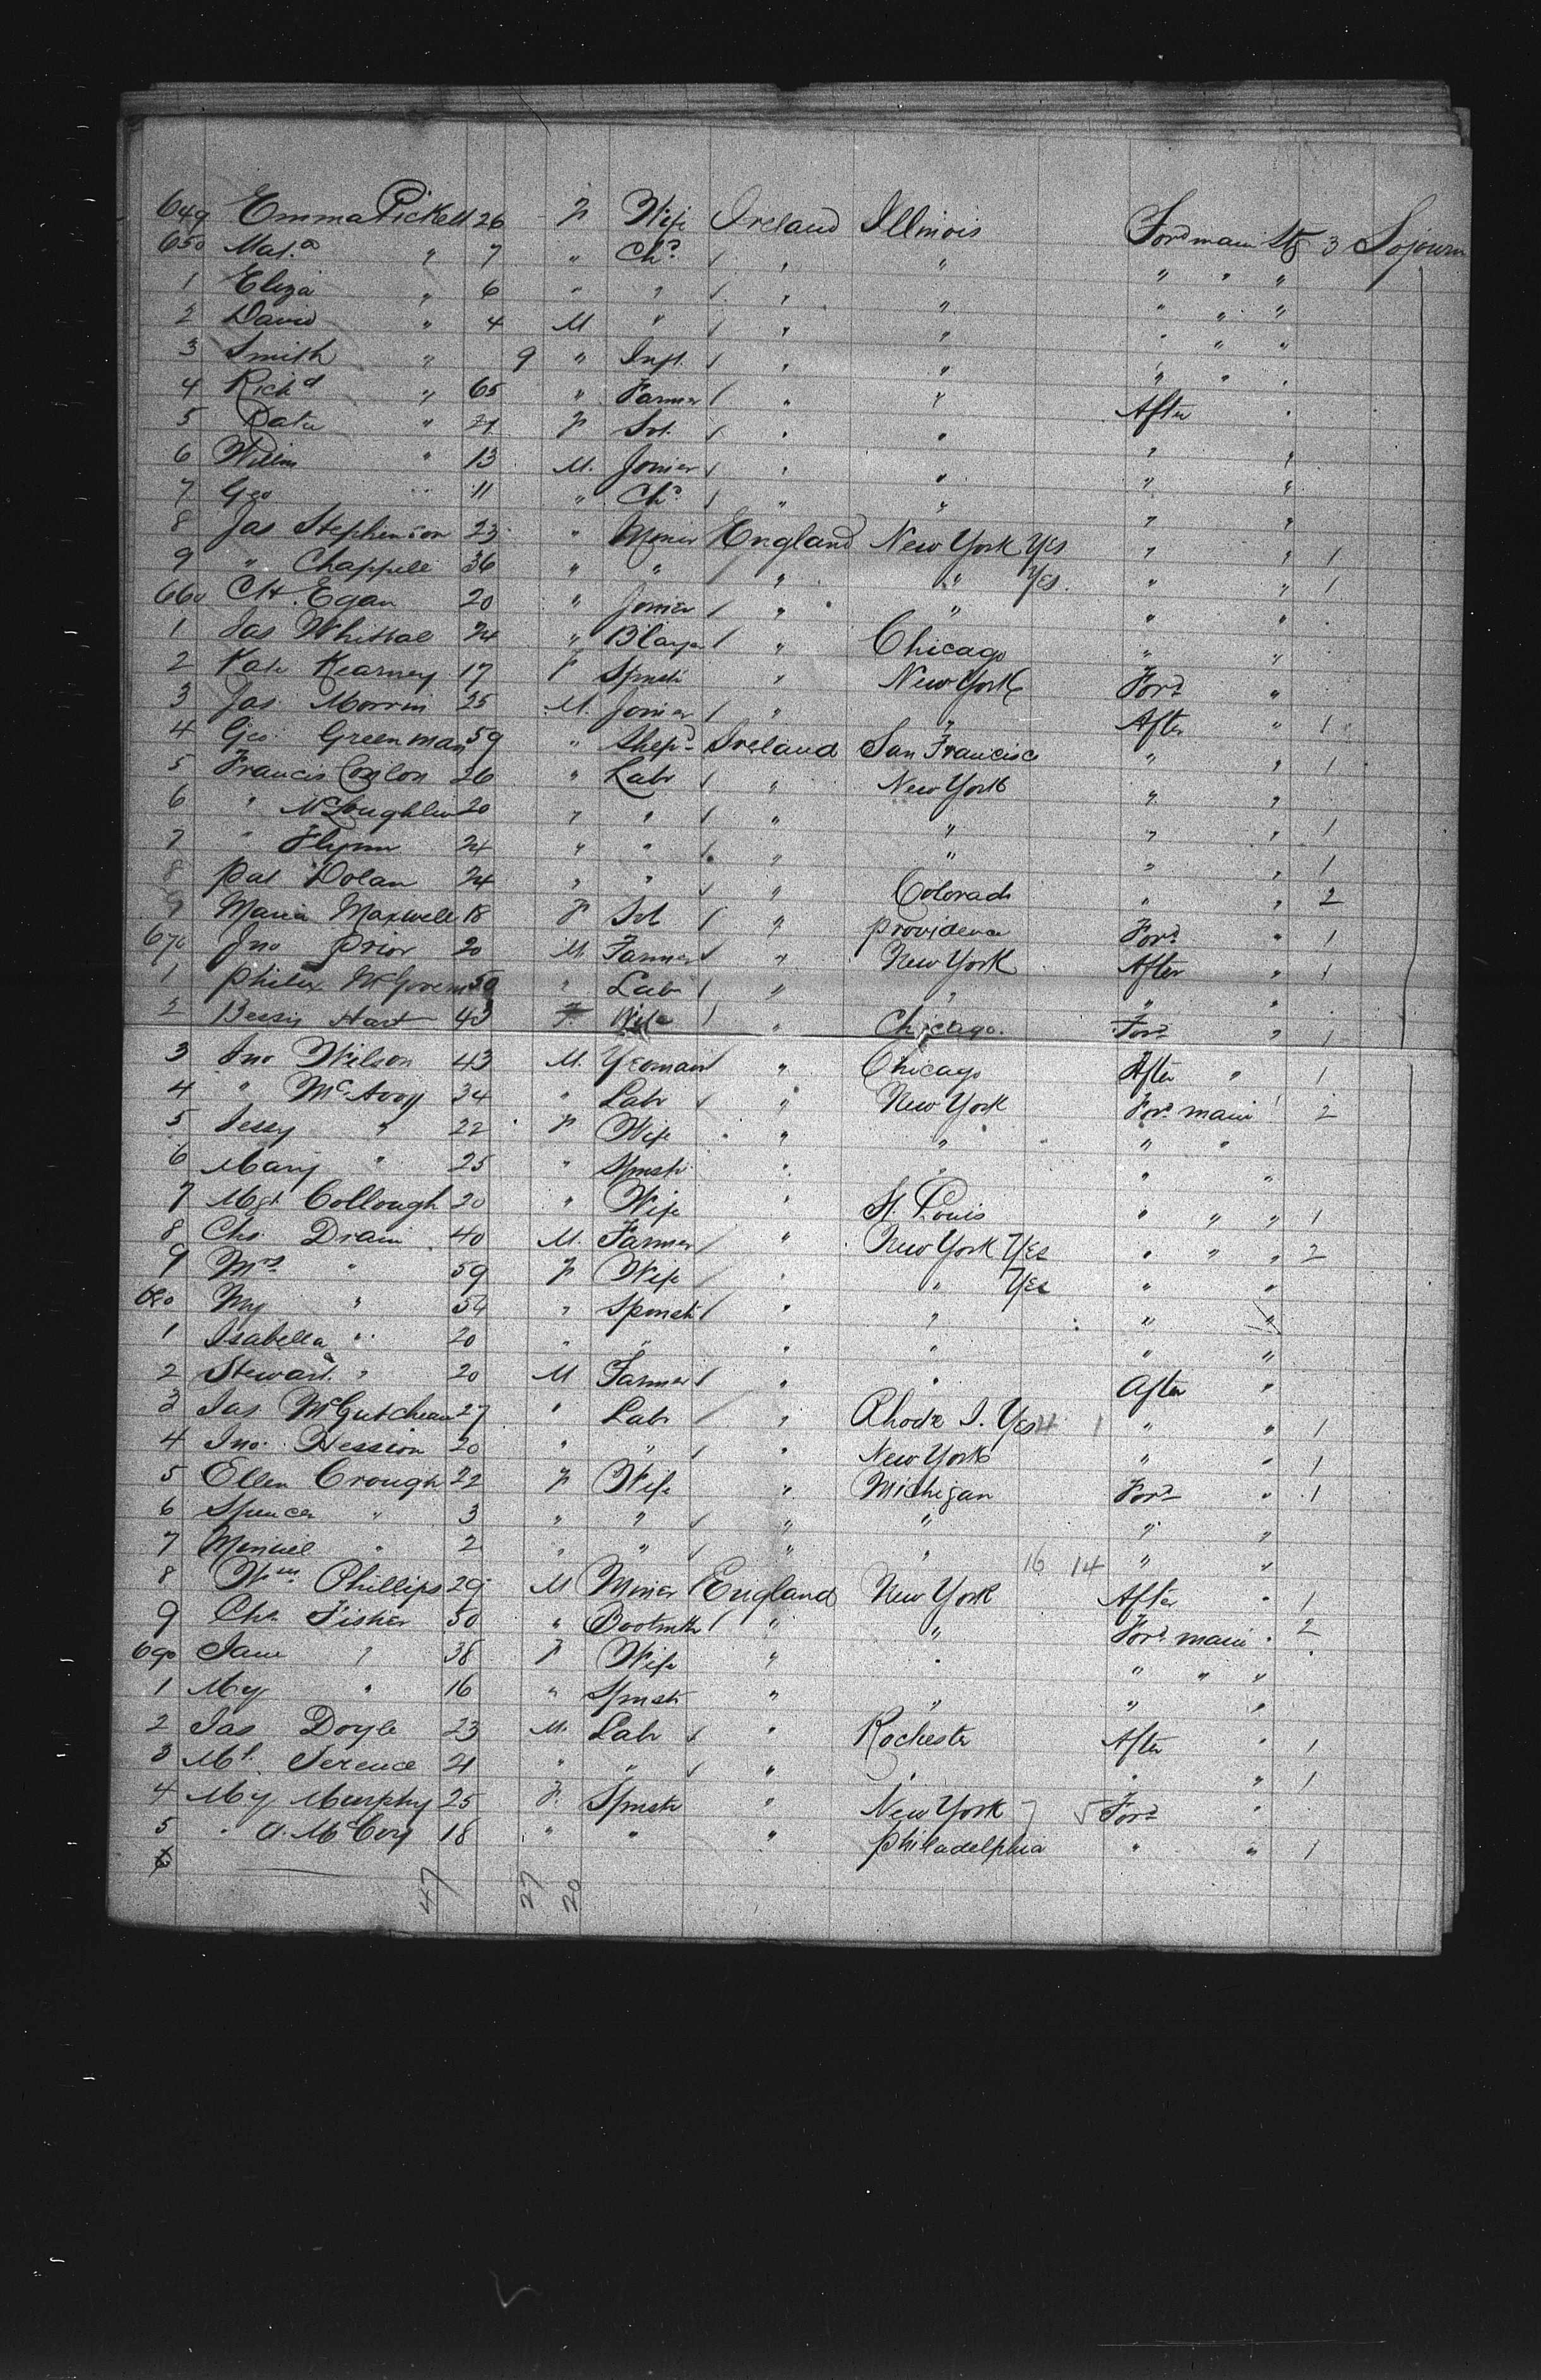 649 Emma Pickell 26 F Wife Ireland Illinois Ford main Stg 3 Sojourn
650 Mat.a " 7 " Chd " " " " "
1 Eliza " 6 " " " " " " "
2 David " 4 M " " " " " "
3 Smith " 9 " Inft. " " " " "
4 Richd " 65 " Farmer " " After "
5 " 21 F Svt. " " " "
6 Willm " 13 M. Joiner " " " "
7 Geo " 11 " Chd " " " "
8 Jas Stephenson 23 " Miner England New York Yes " " 1
9 " Chappell 36 " " " " Yes. " " 1
660 CH. Egan 20 " Joiner " " " "
1 Jas Whittal 24 " Chicago " "
2 Kate Kearney 17 F Spnstr " New York Ford "
3 Jas Morrin 25 M. Joiner " " After " 1
4 Geo. Greenman 59 " Shepd Ireland San Francisco " " 1
5 Francis Conlon 26 " Labr " New York " "
6 " McLoughlin 20 " " " " " " 1
7 " Flynn 24 " " " " " " 1
8 Pat Dolan 24 " " " Colorado " " 2
9 Maria Maxwell 18 F Svt " Providence Ford " 1
670 Jno Prior 20 M Farmer " New York After " 1
1 McGovern 50 " Labr " " " "
2 Bessy Hart 43 F. Wife " Chicago. Ford " 1
3 Jno Wilson 43 M. Yeoman " Chicago After " 1
4 " McAvoy 34 " Labr " New York Ford main " 2
5 Jessy " 22 F Wife " " " "
6 Mary " 25 " Spnstr " " " "
7 Mgt Collough 20 " Wife " St. Louis " " " 1
8 Chs. Drain 40 M. Farmer " New York Yes " " " 2
9 Mrs " 59 F Wife " " Yes " "
680 My " 54 " Spnstr " " " "
1 Isabella " 20 " " " " " "
2 Stewart " 20 M Farmer " " After "
3 Jas McGutchean 27 " Labr " Rhode I. Yes " " 1
4 Jno. Hession 20 " " " New York " " 1
5 Ellen Crough 22 F Wife " Michigan Ford " 1
6 Spencer " 3 " " " " " "
7 Minnie " 2 " " " " 16 14 " "
8 Wm Phillips 29 M Miner England New York After " 1
9 Chs Fisher 50 " " " Ford main " 2
690 Jane " 38 F Wife " " " " "
1 My " 16 " Spnstr " " " "
2 Jas Doyle 23 M. Labr " Rochester After " 1
3 Ml. Terence 21 " " " " " " 1
4 My Murphy 25 F. Spnstr " New York Ford "
5 " A. McCoy 18 " " " Philadelphia " " 1
6
47 27 20